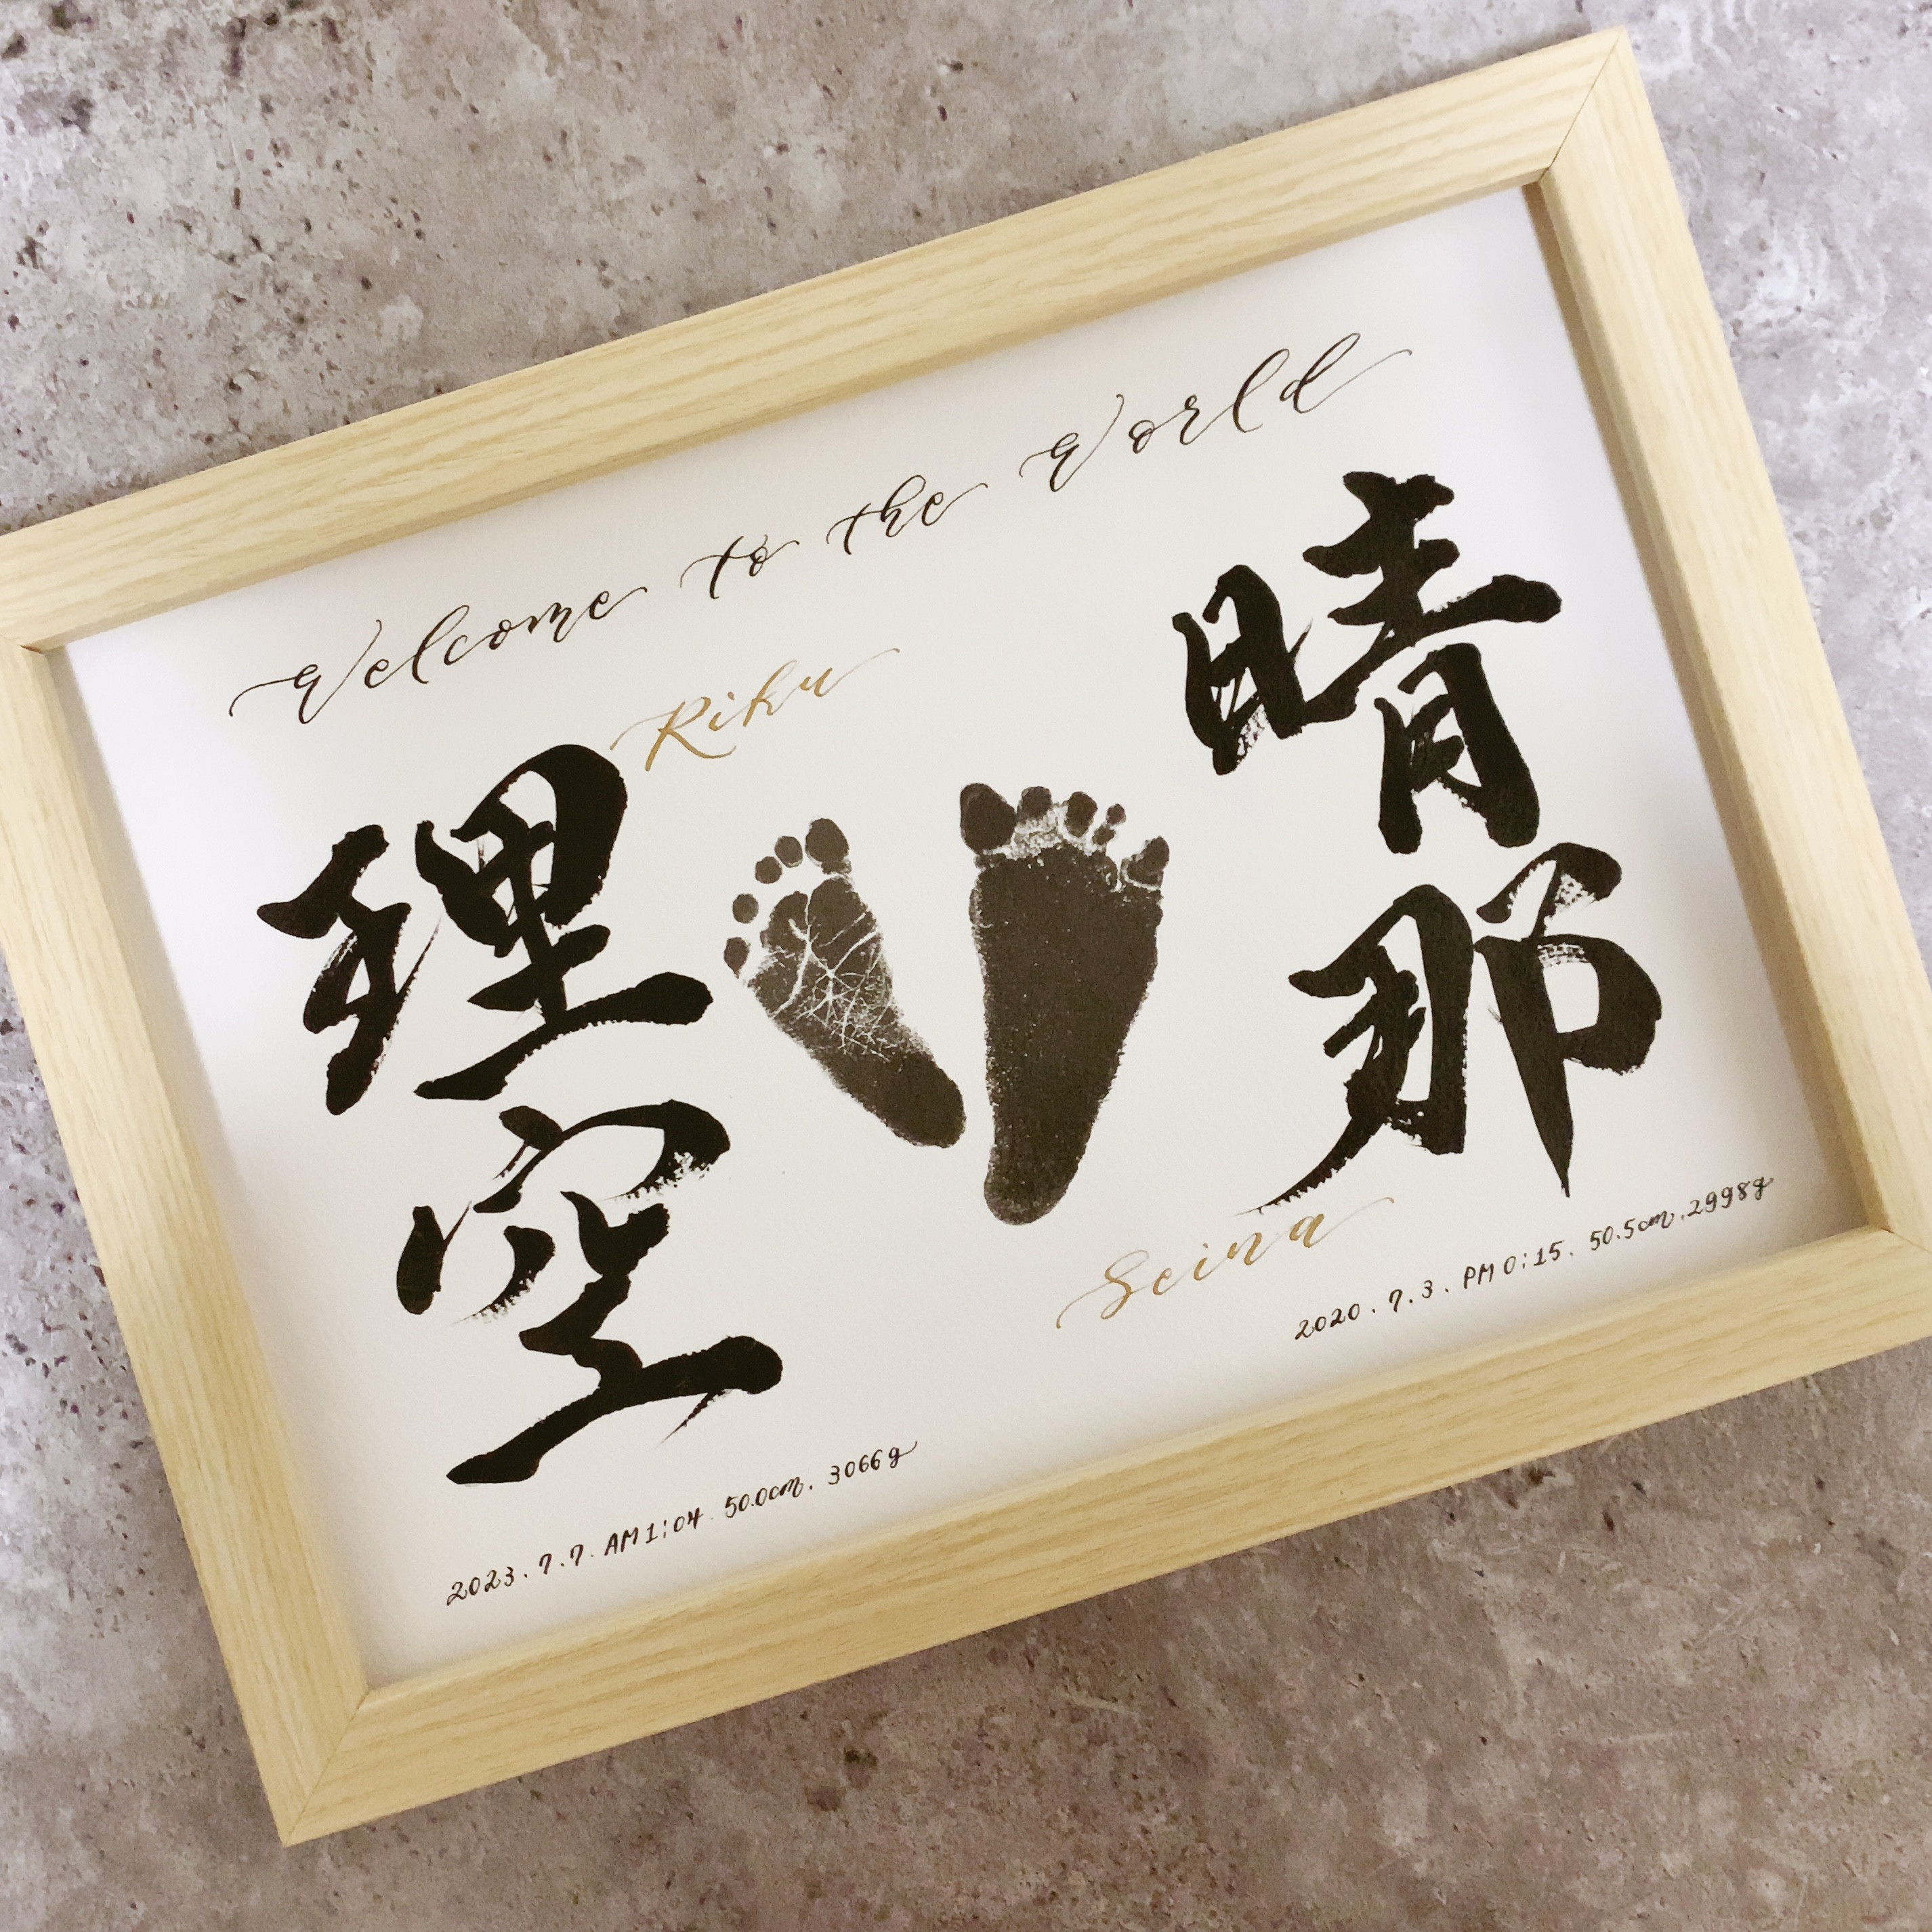 Welcome to the World
晴那
Seina
2020.7.3. PM 0:15. 50.5cm. 2998g
Riku
理空
2023.7.7. AM 1:04. 50.0cm. 3066g